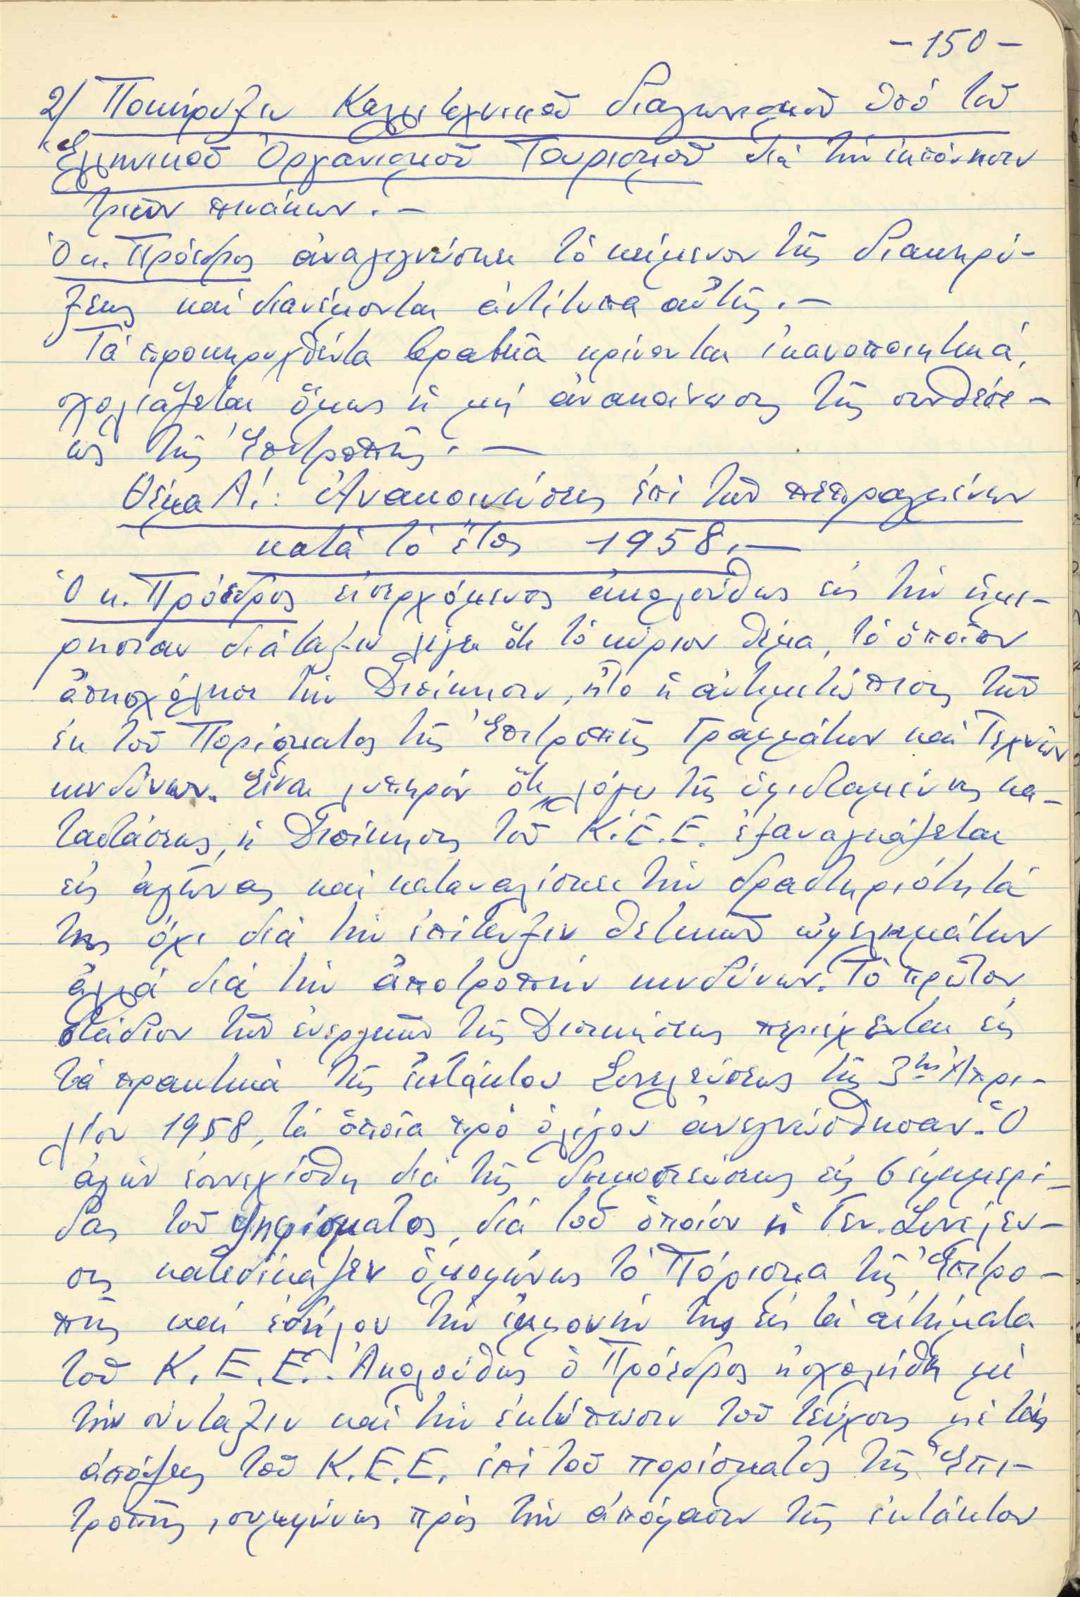 -150-
2/ Ποκήρυξιν Καλλιτεχνικοῦ διαγωνισμοῦ ὑπό τοῦ
Ἑλληνικοῦ Ὀργανισμοῦ Τουρισμοῦ διά τήν ἐκπόνησιν
τριῶν πινάκων.-
Ὁ κ. Πρόεδρος ἀναγιγνώσκει τό κείμενον τῆς διακηρύ-
ξεως καί διανέμονται ἀντίτυπα αὐτῆς.-
Τά προκηρυχθέντα βραβεῖα κρίνονται ἱκανοποιητικά,
σχολιάζεται ὅμως ἡ μή ἀνακοίνωσις τῆς συνθέσε-
ως τῆς Ἐπιτροπῆς.-
Θέμα Α!: Ἀνακοινώσεις ἐπί τῶν πεπραγμένων
κατά τό ἔτος 1958.-
Ὁ κ. Πρόεδρος εἰσερχόμενος ἀκολούθως εἰς τήν ἡμε-
ρησίαν διάταξιν λέγει ὅτι τό κύριον θέμα, τό ὁποῖον
ἀπησχόλησε τήν Διοίκησιν, ἦτο ἡ ἀντιμετώπισις τῶν
ἐκ τοῦ Πορίσματος τῆς Ἐπιτροπῆς Γραμμάτων καί Τεχνῶν
κινδύνων. Εἶναι λυπηρόν ὅτι, λόγῳ τῆς ὑφισταμένης κα-
ταστάσεως, ἡ Διοίκησις τοῦ Κ.Ε.Ε. ἐξαναγκάζεται
εἰς ἀγῶνας καί καταναλίσκει τήν δραστηριότητά
της ὄχι διά τήν ἐπίτευξιν θετικῶν ὠφελημάτων
ἀλλά διά τήν ἀποτροπήν κινδύνων. Τό πρῶτον
στάδιον τῶν ἐνεργειῶν τῆς Διοικήσεως περιέχεται εἰς
τά πρακτικά τῆς ἐκτάκτου Συνελεύσεως τῆς 3ης Ἀπρι-
λίου 1958, τά ὁποῖα πρό ὀλίγου ἀνεγνώσθησαν. Ὁ
ἀγών ἐσυνεχίσθη διά τῆς δημοσιεύσεως εἰς 6 ἐφημερί-
δας τοῦ ψηφίσματος, διά τοῦ ὁποίου ἡ Γεν. Συνέλευ-
σις κατεδίκαζεν ὁμοφώνως τό Πόρισμα τῆς Ἐπιτρο-
πῆς καί ἐδήλου τήν ἐμμονήν της εἰς τά αἰτήματα
τοῦ Κ.Ε.Ε. Ἀκολούθως ὁ Πρόεδρος ἠσχολήθη μέ
τήν σύνταξιν καί τήν ἐκτύπωσιν τοῦ τεύχους μέ τάς
ἀπόψεις τοῦ Κ.Ε.Ε. ἐπί τοῦ πορίσματος τῆς Ἐπι-
τροπῆς, συμφώνως πρός τήν ἀπόφασιν τῆς ἐκτάκτου